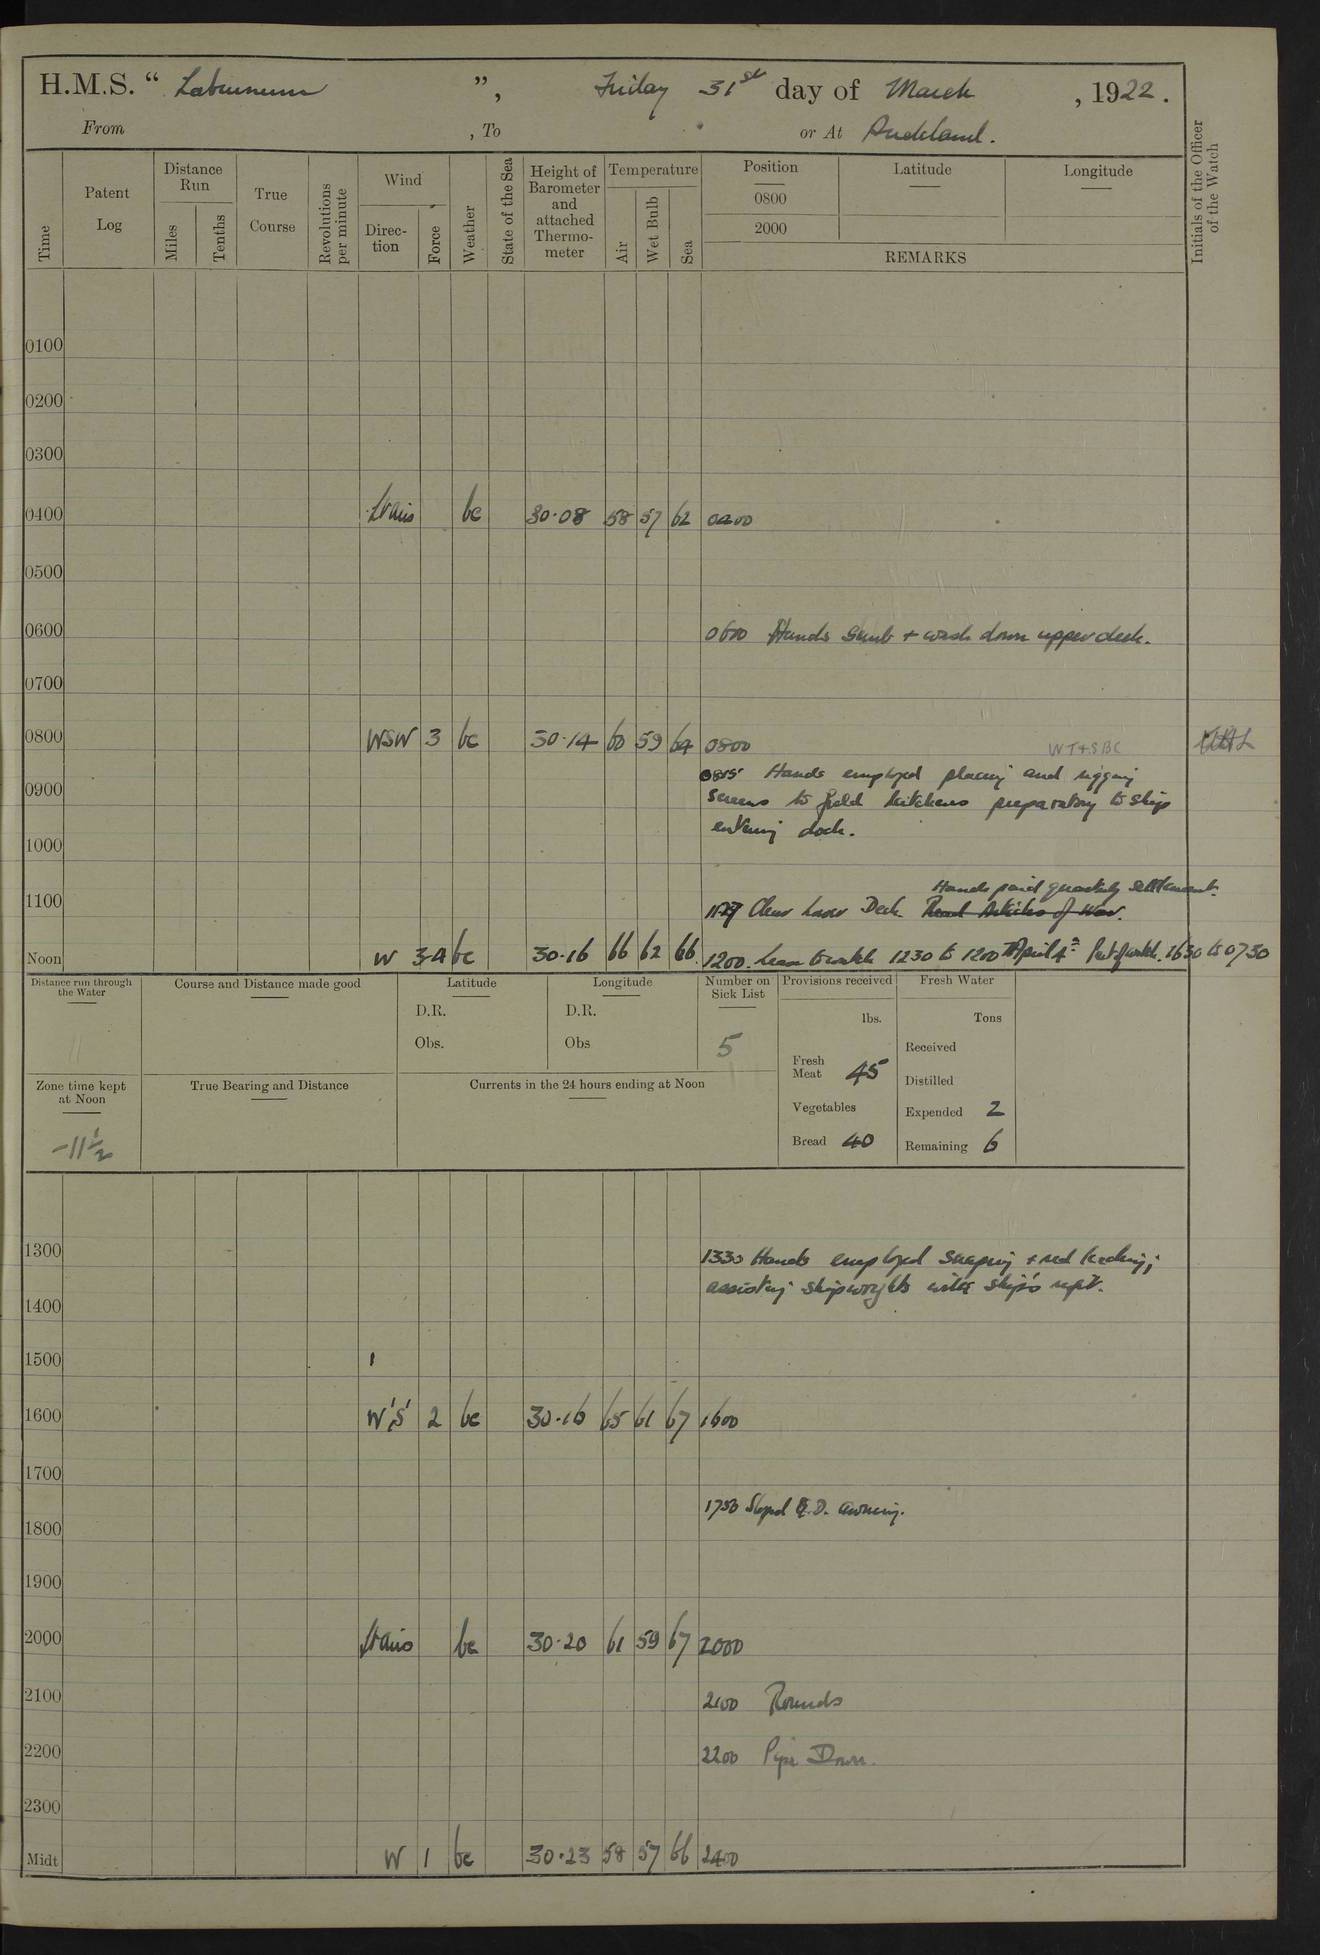 H.M.S. “ Laburnum ”, Friday 31st day of March , 1922.
From , To or At Auckland.
Time
Patent Log
Distance Run
Miles
Tenths
True Course
Revolutions per minute
Wind
Direc-tion
Force
Weather
State of the Sea
Height of Barometer and attached Thermo-meter
Temperature
Air
Wet Bulb
Sea
Position
0800
2000
Latitude
Longitude
REMARKS
Initials of the Officer of the Watch
0100
0200
0300
0400 bc 30.08 58 57 62 0400
0500
0600 0600 Hands scrub + wash down upper deck.
0700
0800 WSW 3 bc 30.14 60 59 64 0800 WT+SBC
0815 Hands employed placing and rigging
0900 screens to field kitchens preparatory to ship
entering dock.
1000
Hands paid quarterly settlement.
1100 Clear Lower Deck. Read Articles of War.
Noon W 3-4 bc 30.16 66 62 66 1200. Leave to watch 1230 to 1200 April 4th Part of watch. 1630 to 0730
Distance run through the Water
Course and Distance made good
Latitude
D.R.
Obs.
Longitude
D.R.
Obs
Number on Sick List
5
Provisions received
lbs.
Fresh Meat 45
Vegetables
Bread 40
Fresh Water
Tons
Received
Distilled
Expended 2
Remaining 6
Zone time kept at Noon
-11½
True Bearing and Distance
Currents in the 24 hours ending at Noon
1300 1330 Hands employed scraping + red leading;
assisting shipwrights with ship's refit.
1400
1500
1600 W'S' 2 bc 30.16 65 61 67 1600
1700
1750 Sloped Q.D. awning.
1800
1900
2000 bc 30.20 61 59 67 2000
2100 2100 Rounds
2200 2200 Pipe Down.
2300
Midt W 1 bc 30.23 58 57 66 2400